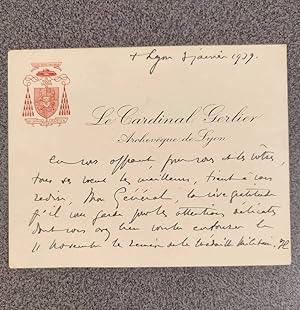 + Lyon 3 janvier 1939.
Le Cardinal Gerlier
Archevêque de Lyon
En vous offrant pour vous et les vôtres,
tous ses vœux les meilleurs, tient à vous
redire, Mon Général, la vive gratitude
qu'il vous garde pour les attentions délicates
dont vous avez bien voulu entourer le
11 Novembre le de la Médaille Militaire.